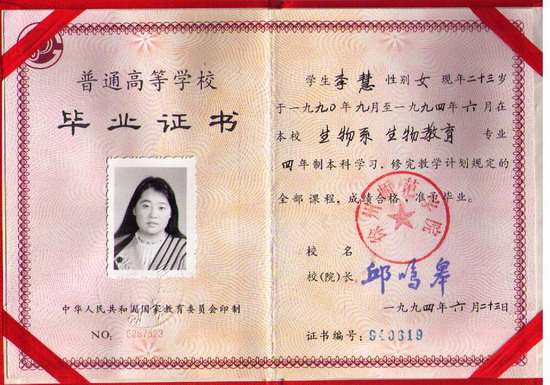 普通高等学校
毕业证书
中华人民共和国国家教育委员会印制
NO:
学生 李慧 性别 女 现年二十三岁
于一九九〇年九月至一九九四年六月在
本校 生物系 生物教育 专业
四年制本科学习,修完教学计划规定的
全部课程,成绩合格,准予毕业。
徐州师范学院
校 名
校(院)长 邱鸣皋
一九九四年六月二十三日
证书编号: 940619